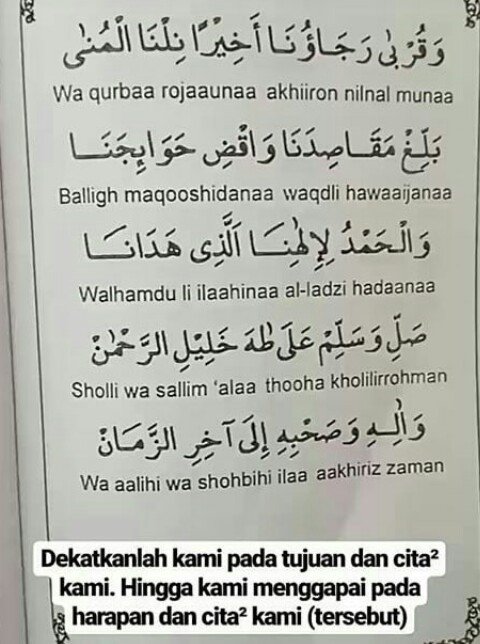 وَقُرْبٰى رَجَاؤُنَا أَخِيْرًا نِلْنَا الْمُنٰى
Wa qurbaa rojaaunaa akhiiron nilnal munaa
بَلِّغْ مَقَاصِدَنَا وَاقْضِ حَوَايِجَنَا
Balligh maqooshidanaa waqdli hawaaijanaa
وَالْحَمْدُ لِإِلٰهِنَا الَّذِى هَدَانَا
Walhamdu li ilaahinaa al-ladzi hadaanaa
صَلِّ وَسَلِّمْ عَلَى طٰهَ خَلِيْلِ الرَّحْمٰنْ
Sholli wa sallim 'alaa thooha kholilirrohman
وَاٰلِهِ وَصَحْبِهِ إِلَى آخِرِ الزَّمَانْ
Wa aalihi wa shohbihi ilaa aakhiriz zaman
Dekatkanlah kami pada tujuan dan cita²
kami. Hingga kami menggapai pada
harapan dan cita² kami (tersebut)